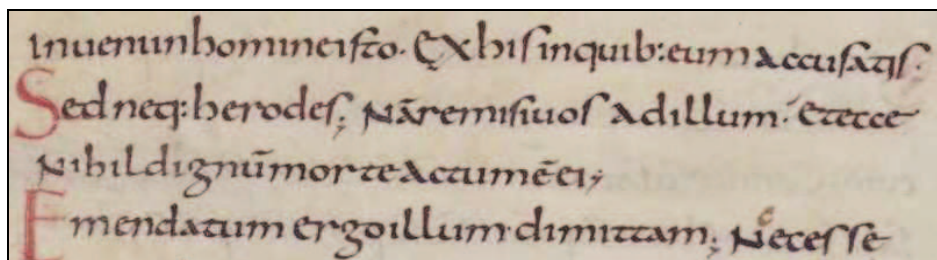 inueni in homine isto. Ex his in quib: eum accusatis.
Sed neq: herodes; Nā remisi uos ad illum. Et ecce
Nihil dignū morte actum ē ei;
Emendatum ergo illum dimittam; Necesse